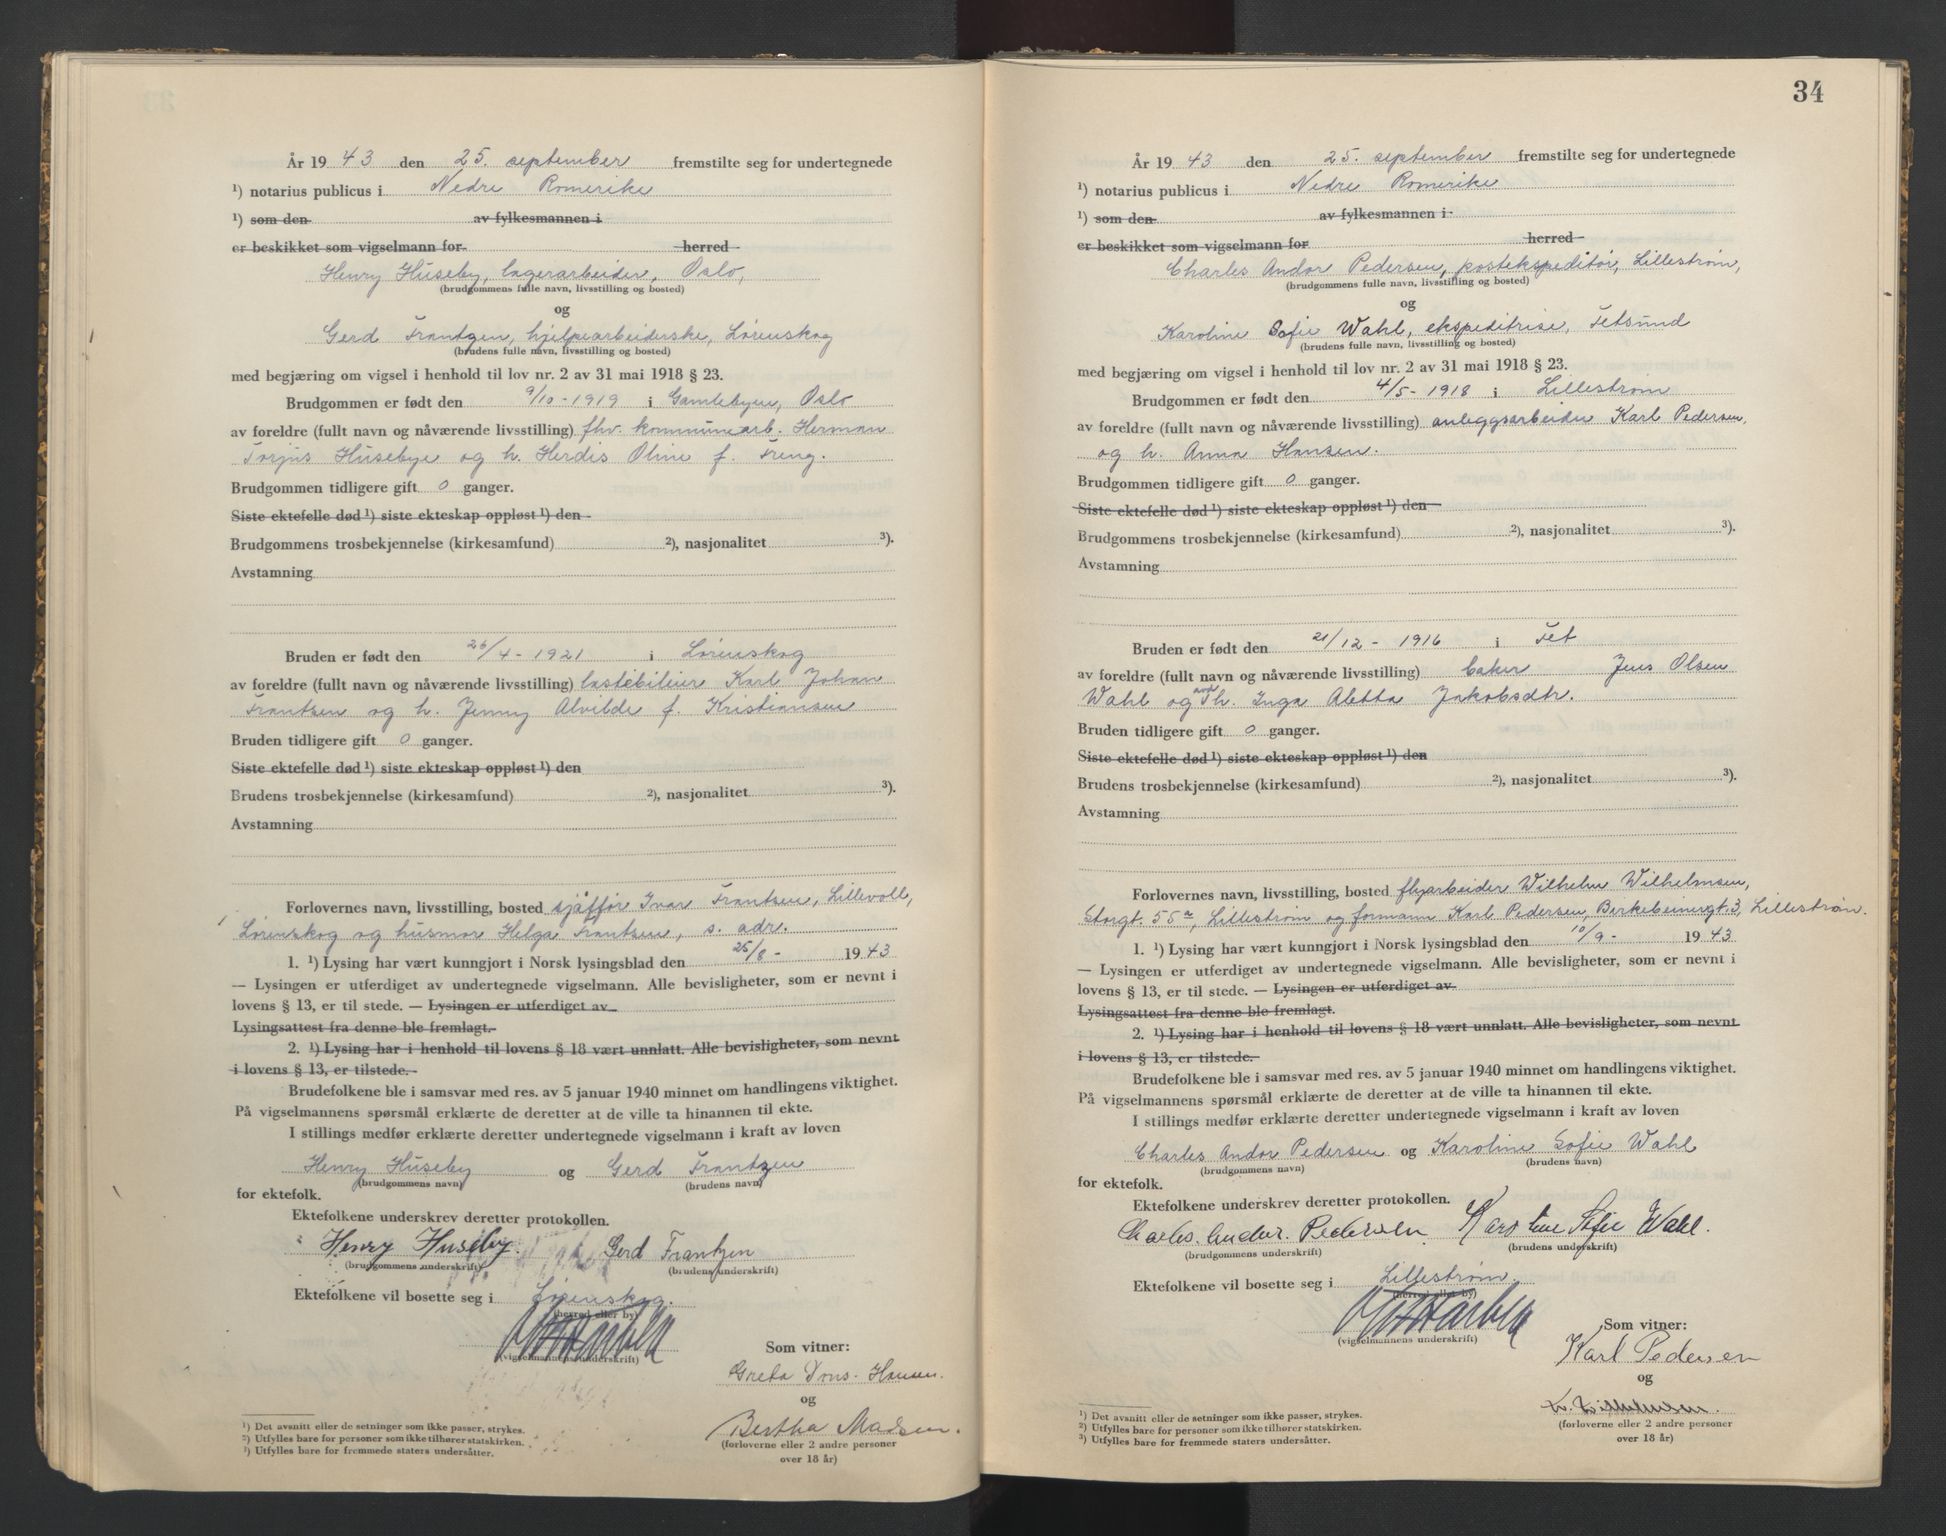 År 19 43 den 25. september fremstilte seg for undertegnede
¹) notarius publicus i Nedre Romerike
¹) som den av fylkesmannen i
er beskikket som vigselmann for herred
Henry Huseby, lagerarbeider, Oslo,
(brudgommens fulle navn, livsstilling og bosted)
og
Gerd Frantzen, hjelpearbeiderske, Lørenskog
(brudens fulle navn, livsstilling og bosted)
med begjæring om vigsel i henhold til lov nr. 2 av 31 mai 1918 § 23.
Brudgommen er født den 9/10-1919 i Gamlebyen, Oslo
av foreldre (fullt navn og nåværende livsstilling) fhv. kommunearb. Herman
Torjus Husebye og h. Herdis Oline f. Freng.
Brudgommen tidligere gift 0 ganger.
Siste ektefelle død ¹) siste ekteskap oppløst ¹) den
Brudgommens trosbekjennelse (kirkesamfund) ²), nasjonalitet ³).
Avstamning
Bruden er født den 26/4-1921 i Lørenskog
av foreldre (fullt navn og nåværende livsstilling) lastebileier Karl Johan
Frantsen og h. Jenny Alvilde f. Kristiansen
Bruden tidligere gift 0 ganger.
Siste ektefelle død ¹) siste ekteskap oppløst ¹) den
Brudens trosbekjennelse (kirkesamfund) ²), nasjonalitet ³).
Avstamning
Forlovernes navn, livsstilling, bosted sjåffør Ivar Frantsen, Lillevoll,
Lørenskog og husmor Helga Frantsen, s. adr.
1. ¹) Lysing har vært kunngjort i Norsk lysingsblad den 25/8- 19 43
— Lysingen er utferdiget av undertegnede vigselmann. Alle bevisligheter, som er nevnt i
lovens § 13, er til stede. — Lysingen er utferdiget av
Lysingsattest fra denne ble fremlagt.
2. ¹) Lysing har i henhold til lovens § 18 vært unnlatt. Alle bevisligheter, som nevnt
i lovens § 13, er tilstede.
Brudefolkene ble i samsvar med res. av 5 januar 1940 minnet om handlingens viktighet.
På vigselmannens spørsmål erklærte de deretter at de ville ta hinannen til ekte.
I stillings medfør erklærte deretter undertegnede vigselmann i kraft av loven
Henry Huseby og Gerd Frantzen
(brudgommens navn) (brudens navn)
for ektefolk.
Ektefolkene underskrev deretter protokollen.
Henry Huseby. Gerd Frantzen
(brudgommens underskrift) (brudens underskrift)
Ektefolkene vil bosette seg i Lørenskog.
(herred eller by)
(vigselmannens underskrift)
Som vitner:
Greta Dons-Hansen.
og
Bertha Madsen.
(forloverne eller 2 andre personer
over 18 år)
¹) Det avsnitt eller de setninger som ikke passer, strykes.
²) Utfylles bare for personer som ikke tilhører statskirken.
³) Utfylles bare for fremmede staters undersåtter.
34
År 19 43 den 25. september fremstilte seg for undertegnede
¹) notarius publicus i Nedre Romerike
¹) som den av fylkesmannen i
er beskikket som vigselmann for herred
Charles Andor Pedersen, postekspeditør, Lillestrøm,
(brudgommens fulle navn, livsstilling og bosted)
og
Karoline Sofie Wahl, ekspeditrise, Fetsund
(brudens fulle navn, livsstilling og bosted)
med begjæring om vigsel i henhold til lov nr. 2 av 31 mai 1918 § 23.
Brudgommen er født den 4/5-1918 i Lillestrøm
av foreldre (fullt navn og nåværende livsstilling) anleggsarbeider Karl Pedersen,
og h. Anna Hansen.
Brudgommen tidligere gift 0 ganger.
Siste ektefelle død ¹) siste ekteskap oppløst ¹) den
Brudgommens trosbekjennelse (kirkesamfund) ²), nasjonalitet ³).
Avstamning
Bruden er født den 21/12-1916 i Fet
av foreldre (fullt navn og nåværende livsstilling) baker Jens Olsen
Wahl og h. Inga Aletta Jakobsdtr.
Bruden tidligere gift 0 ganger.
Siste ektefelle død ¹) siste ekteskap oppløst ¹) den
Brudens trosbekjennelse (kirkesamfund) ²), nasjonalitet ³).
Avstamning
Forlovernes navn, livsstilling, bosted flyarbeider Wilhelm Wilhelmsen,
Storgt. 55ᵃ, Lillestrøm og formann Karl Pedersen, Birkebeinergt. 3, Lillestrøm.
1. ¹) Lysing har vært kunngjort i Norsk lysingsblad den 10/9- 19 43
— Lysingen er utferdiget av undertegnede vigselmann. Alle bevisligheter, som er nevnt i
lovens § 13, er til stede. — Lysingen er utferdiget av
Lysingsattest fra denne ble fremlagt.
2. ¹) Lysing har i henhold til lovens § 18 vært unnlatt. Alle bevisligheter, som nevnt
i lovens § 13, er tilstede.
Brudefolkene ble i samsvar med res. av 5 januar 1940 minnet om handlingens viktighet.
På vigselmannens spørsmål erklærte de deretter at de ville ta hinannen til ekte.
I stillings medfør erklærte deretter undertegnede vigselmann i kraft av loven
Charles Andor Pedersen og Karoline Sofie Wahl
(brudgommens navn) (brudens navn)
for ektefolk.
Ektefolkene underskrev deretter protokollen.
Charles. Andor. Pedersen. Karoline Sofie Wahl.
(brudgommens underskrift) (brudens underskrift)
Ektefolkene vil bosette seg i Lillestrøm.
(herred eller by)
(vigselmannens underskrift)
Som vitner:
Karl Pedersen
og
(forloverne eller 2 andre personer
over 18 år)
¹) Det avsnitt eller de setninger som ikke passer, strykes.
²) Utfylles bare for personer som ikke tilhører statskirken.
³) Utfylles bare for fremmede staters undersåtter.